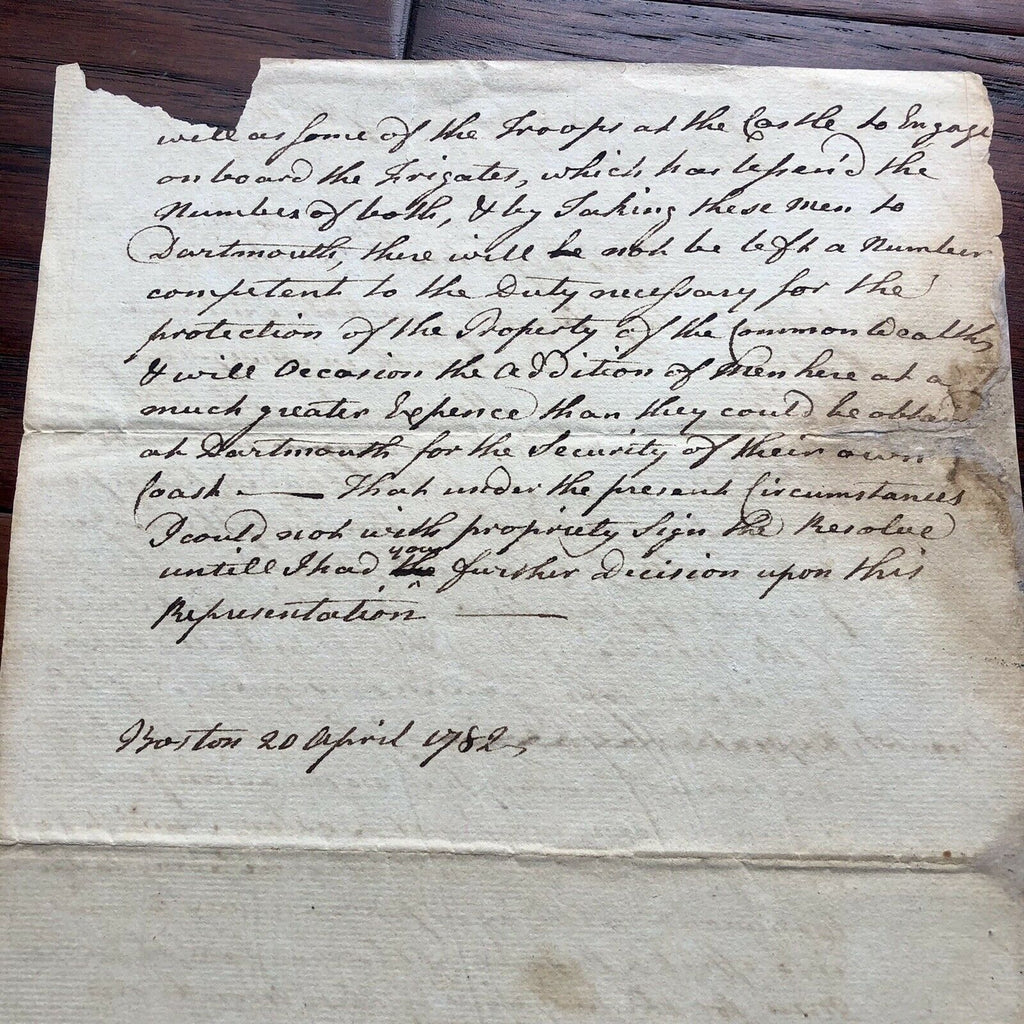 well as some of the Troops at the Castle to Engage
on board the Frigates, which has lessen'd the
Number of both, & by Taking these Men to
Dartmouth, there will be not be left a Number
competent to the Duty necessary for the
protection of the Property of the Commonwealth,
& will Occasion the addition of Men here at a
much greater Expence than they could be obtain
at Dartmouth for the Security of their own
Coast — That under the present Circumstances
I could not with propriety Sign the Resolve
untill I had the your further Decision upon this
Representation —
Boston 20 April 1782,